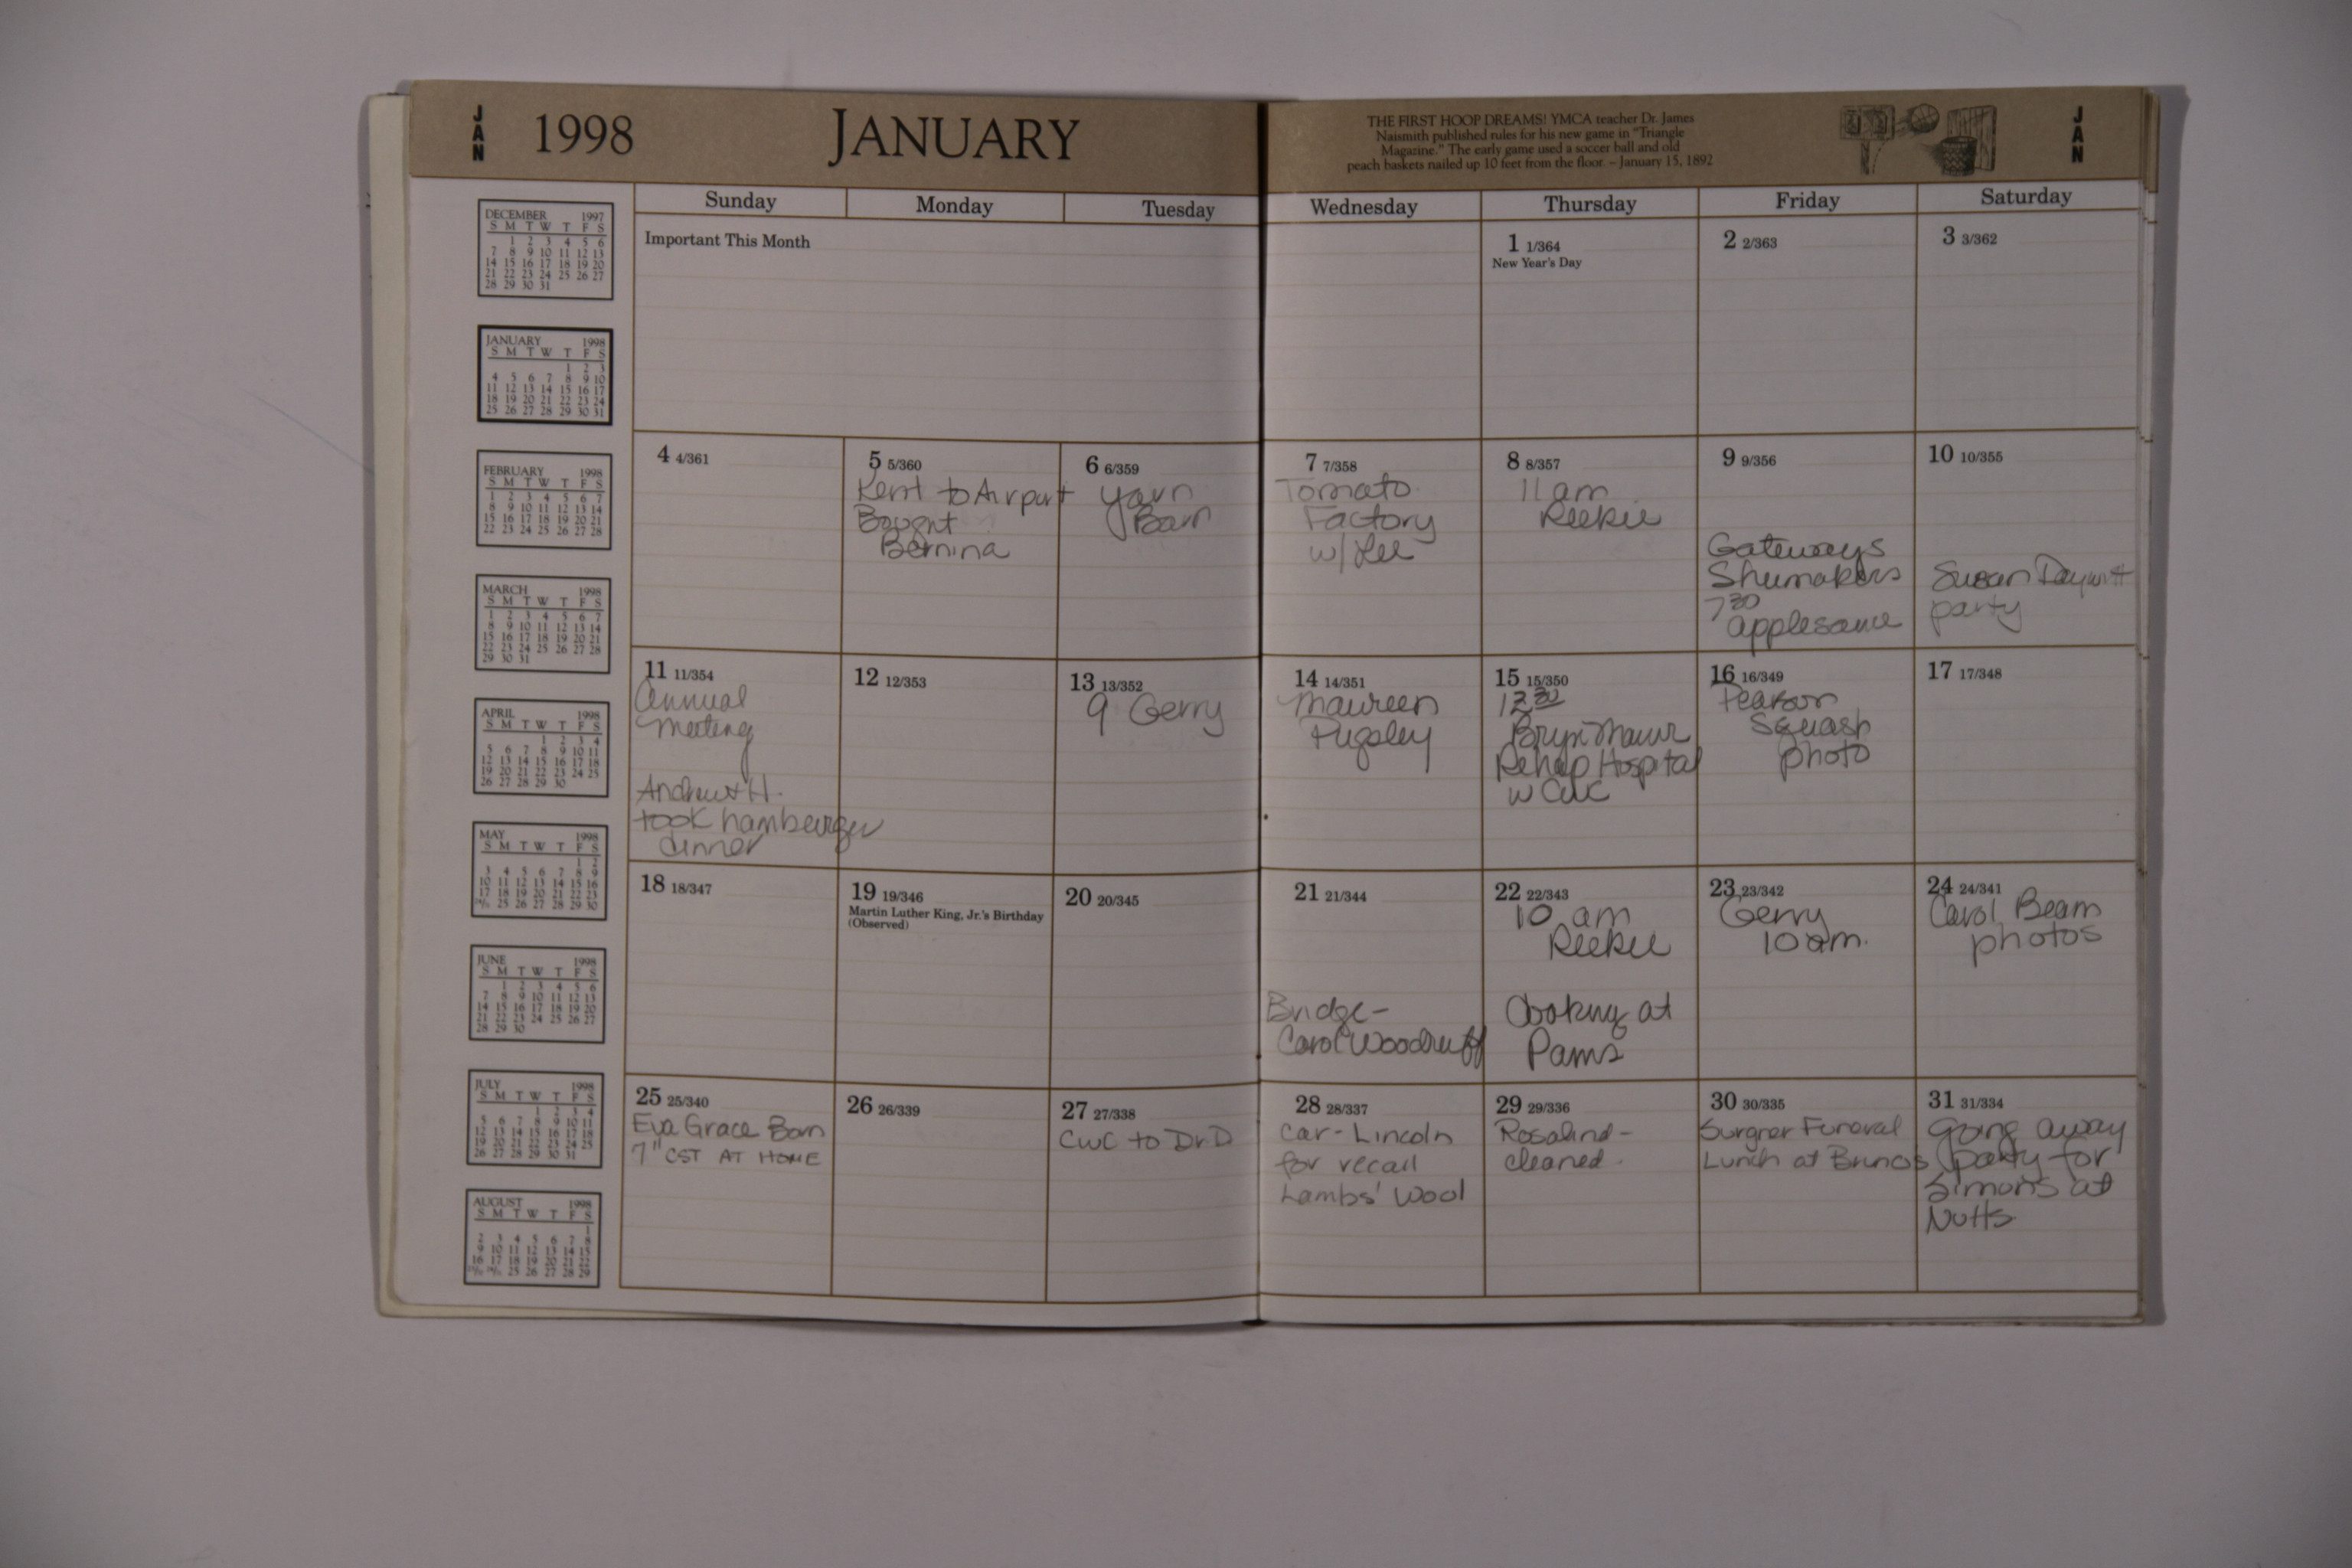 JAN
1998
JANUARY
THE FIRST HOOP DREAMS! YMCA teacher Dr. James
Naismith published rules for his new game in "Triangle
Magazine." The early game used a soccer ball and old
peach baskets nailed up 10 feet from the floor. – January 15, 1892
JAN
Sunday Monday Tuesday Wednesday Thursday Friday Saturday
Important This Month
1 1/364
New Year's Day
2 2/363
3 3/362
4 4/361
5 5/360
Kent to Airport
Bought
Bernina
6 6/359
Yarn
Barn
7 7/358
Tomato
Factory
w/ Lee
8 8/357
11 am
Reekie
9 9/356
Gateways
Shumakers
7 30
applesauce
10 10/355
Susan Daywitt
party
11 11/354
Annual
Meeting
Andrew + H.
took hamburger
dinner
12 12/353
13 13/352
9 Gerry
14 14/351
Maureen
Pugsley
15 15/350
12 30
Bryn Mawr
Rehap Hospital
w CWC
16 16/349
Pearson
Squash
photo
17 17/348
18 18/347
19 19/346
Martin Luther King, Jr.'s Birthday
(Observed)
20 20/345
21 21/344
Bridge-
Carol Woodruff
22 22/343
10 am
Reekie
Cooking at
Pams
23 23/342
Gerry
10 am.
24 24/341
Carol Beam
photos
25 25/340
Eva Grace Born
7" CST AT HOME
26 26/339
27 27/338
CWC to Dr. D
28 28/337
Car - Lincoln
for recall
Lambs' Wool
29 29/336
Rosalind -
cleaned.
30 30/335
Surgner Funeral
Lunch at Brunos
31 31/334
going away
party for
Simons at
Nutts
DECEMBER 1997
S M T W T F S
1 2 3 4 5 6
7 8 9 10 11 12 13
14 15 16 17 18 19 20
21 22 23 24 25 26 27
28 29 30 31
JANUARY 1998
S M T W T F S
1 2 3
4 5 6 7 8 9 10
11 12 13 14 15 16 17
18 19 20 21 22 23 24
25 26 27 28 29 30 31
FEBRUARY 1998
S M T W T F S
1 2 3 4 5 6 7
8 9 10 11 12 13 14
15 16 17 18 19 20 21
22 23 24 25 26 27 28
MARCH 1998
S M T W T F S
1 2 3 4 5 6 7
8 9 10 11 12 13 14
15 16 17 18 19 20 21
22 23 24 25 26 27 28
29 30 31
APRIL 1998
S M T W T F S
1 2 3 4
5 6 7 8 9 10 11
12 13 14 15 16 17 18
19 20 21 22 23 24 25
26 27 28 29 30
MAY 1998
S M T W T F S
1 2
3 4 5 6 7 8 9
10 11 12 13 14 15 16
17 18 19 20 21 22 23
24/31 25 26 27 28 29 30
JUNE 1998
S M T W T F S
1 2 3 4 5 6
7 8 9 10 11 12 13
14 15 16 17 18 19 20
21 22 23 24 25 26 27
28 29 30
JULY 1998
S M T W T F S
1 2 3 4
5 6 7 8 9 10 11
12 13 14 15 16 17 18
19 20 21 22 23 24 25
26 27 28 29 30 31
AUGUST 1998
S M T W T F S
1
2 3 4 5 6 7 8
9 10 11 12 13 14 15
16 17 18 19 20 21 22
23/30 24/31 25 26 27 28 29